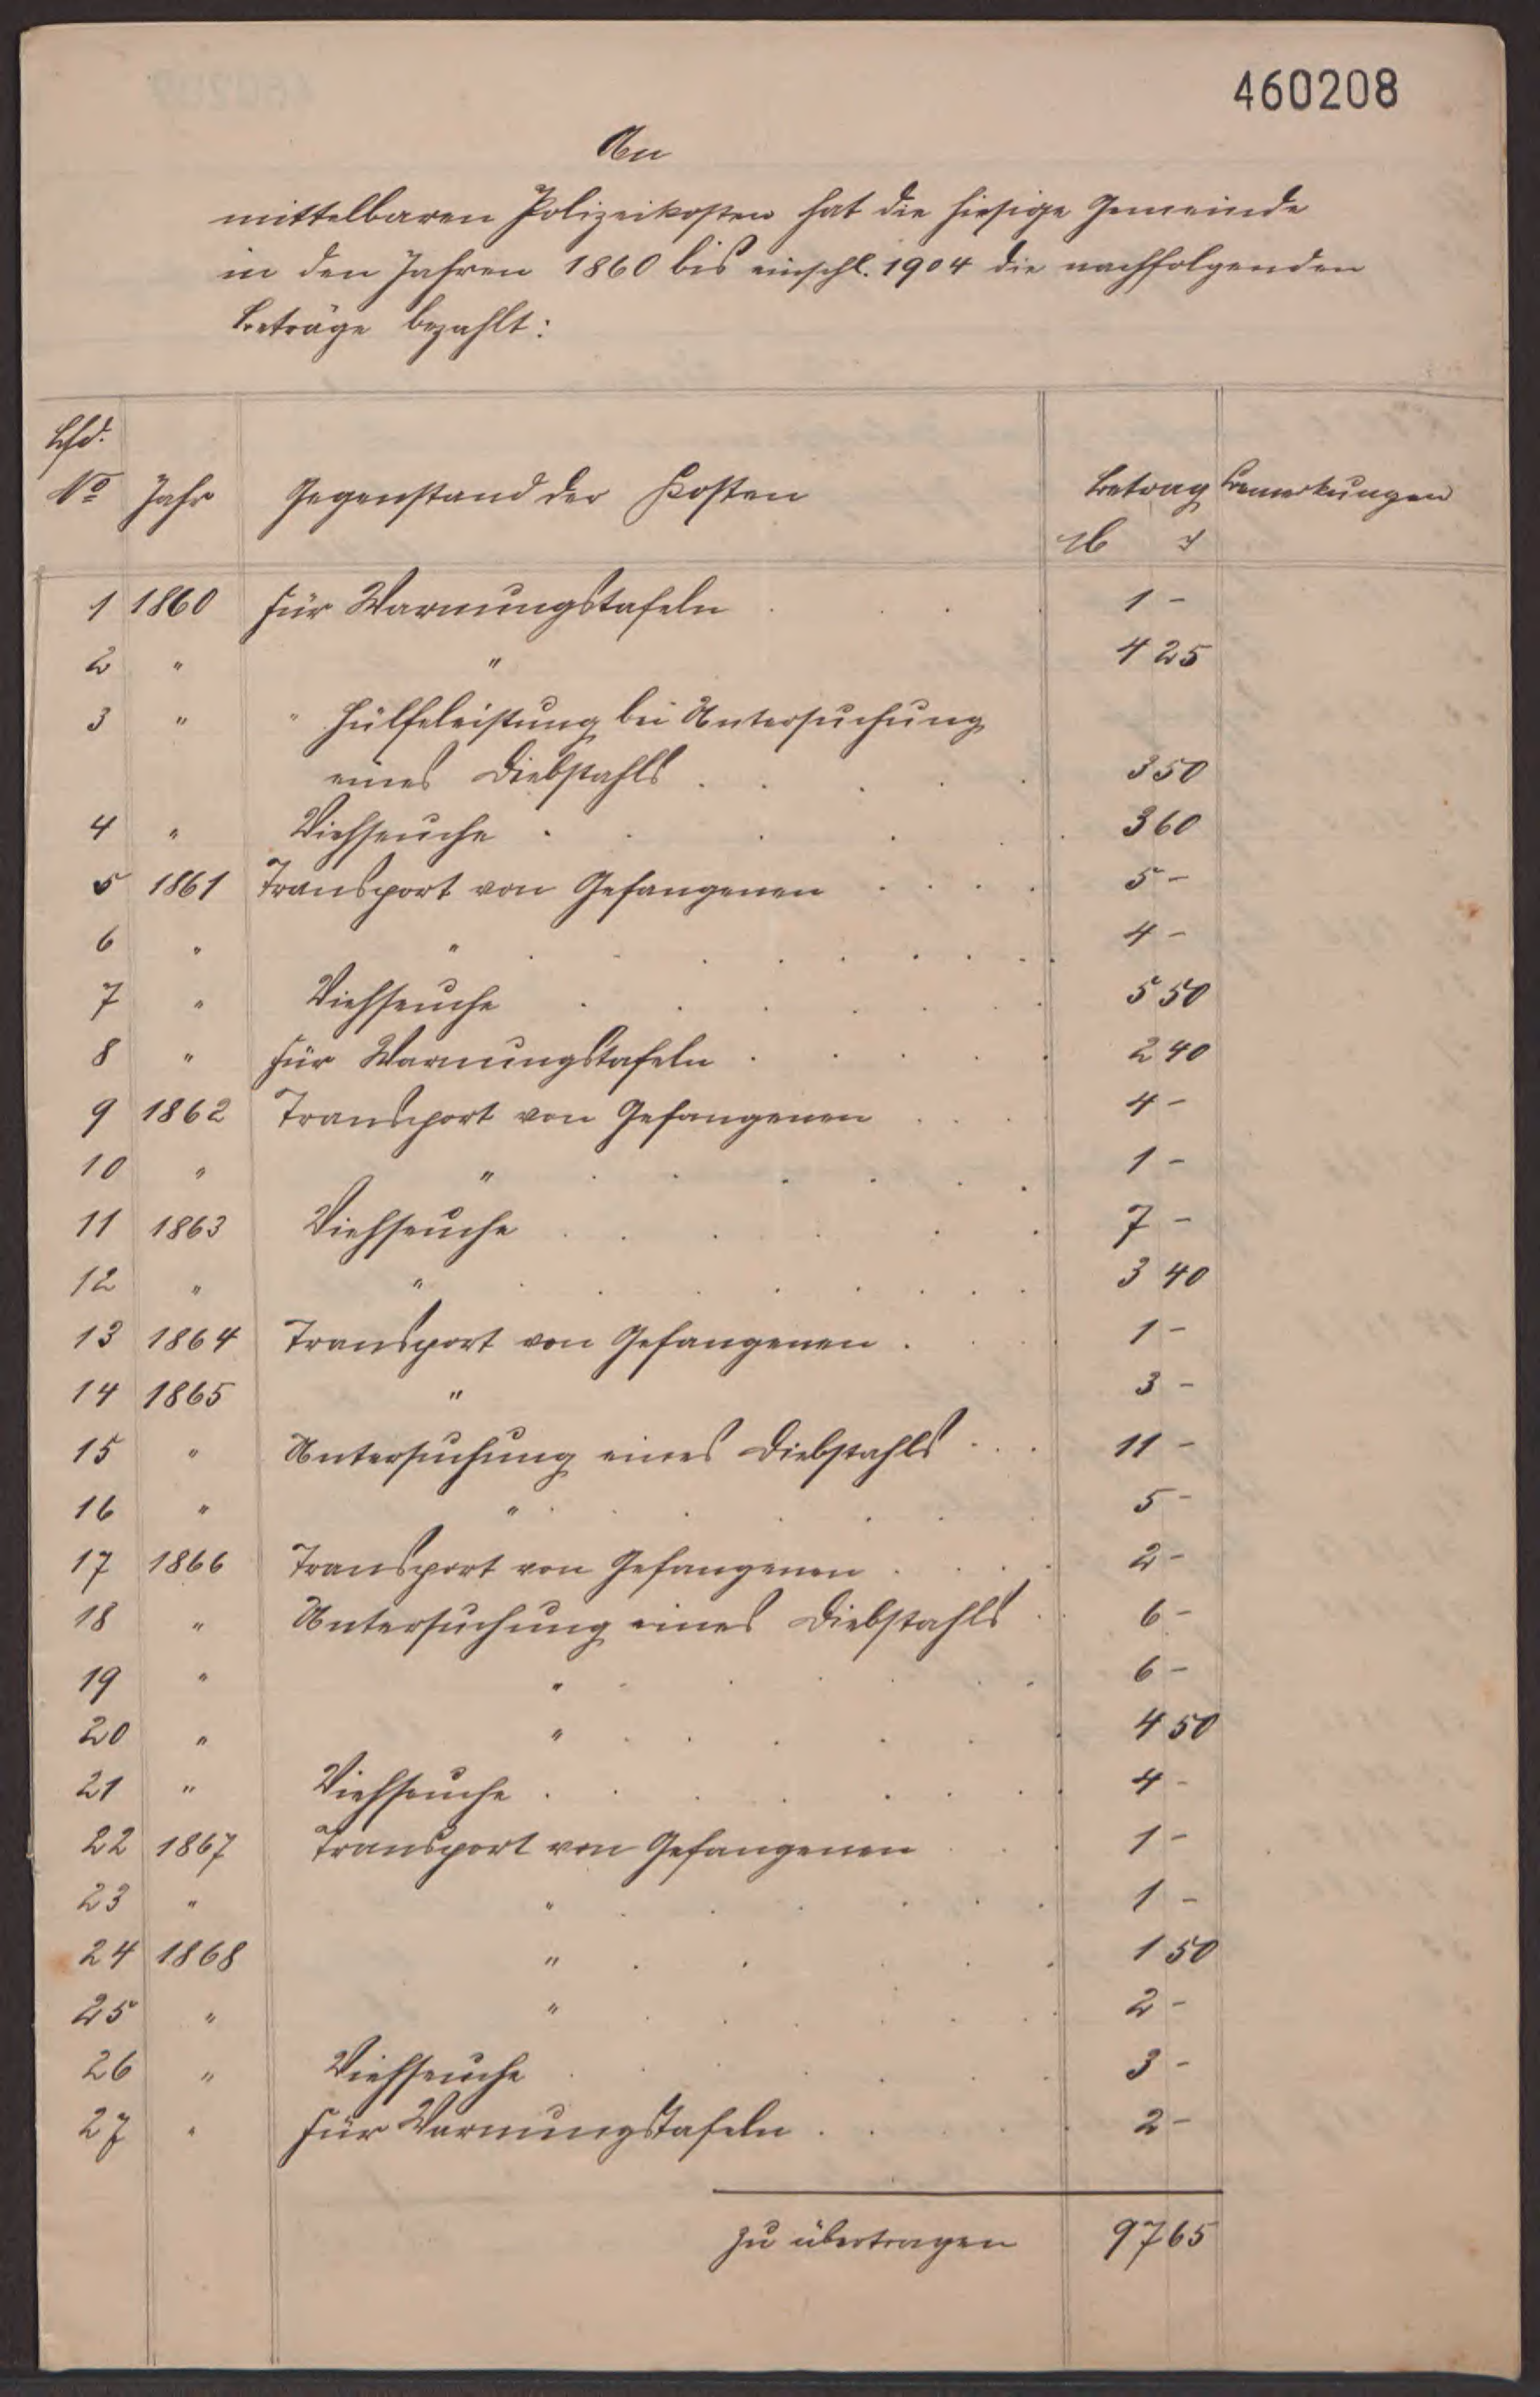 460208
An
mittelbaren Polizeikosten hat die hiesige Gemeinde
in den Jahren 1860 bis einschl. 1904 die nachfolgenden
Beträge bezahlt:
Lfd.
No Jahr Gegenstand der Kosten Betrag Bemerkungen
M ₰
1 1860 Für Warnungstafeln . . . 1 -
2 " " 4 25
3 " " Hülfeleistung bei Untersuchung
eines Diebstahls . . . . . 3 50
4 " Viehseuche . . . . . 3 60
5 1861 Transport von Gefangenen . . . . 5 -
6 " " . . . . . . . . 4 -
7 " Viehseuche . . . . . . 5 50
8 " Für Warnungstafeln . . . . . 2 40
9 1862 Transport von Gefangenen . . . 4 -
10 " " . . . . . . 1 -
11 1863 Viehseuche . . . . . . 7 -
12 " " . . . . . . . 3 40
13 1864 Transport von Gefangenen . . . 1 -
14 1865 " 3 -
15 " Untersuchung eines Diebstahls . . . 11 -
16 " " . . . . . 5 -
17 1866 Transport von Gefangenen . . . . 2 -
18 " Untersuchung eines Diebstahls . 6 -
19 " " . . . . . 6 -
20 " " . . . . . . 4 50
21 " Viehseuche . . . . . . . 4 -
22 1867 Transport von Gefangenen . . . 1 -
23 " " . . . . . . 1 -
24 1868 " . . . . . 1 50
25 " " . . . . . . 2 -
26 " Viehseuche . . . . . 3 -
27 " Für Warnungstafeln . . . . . 2 -
zu übertragen 97 65